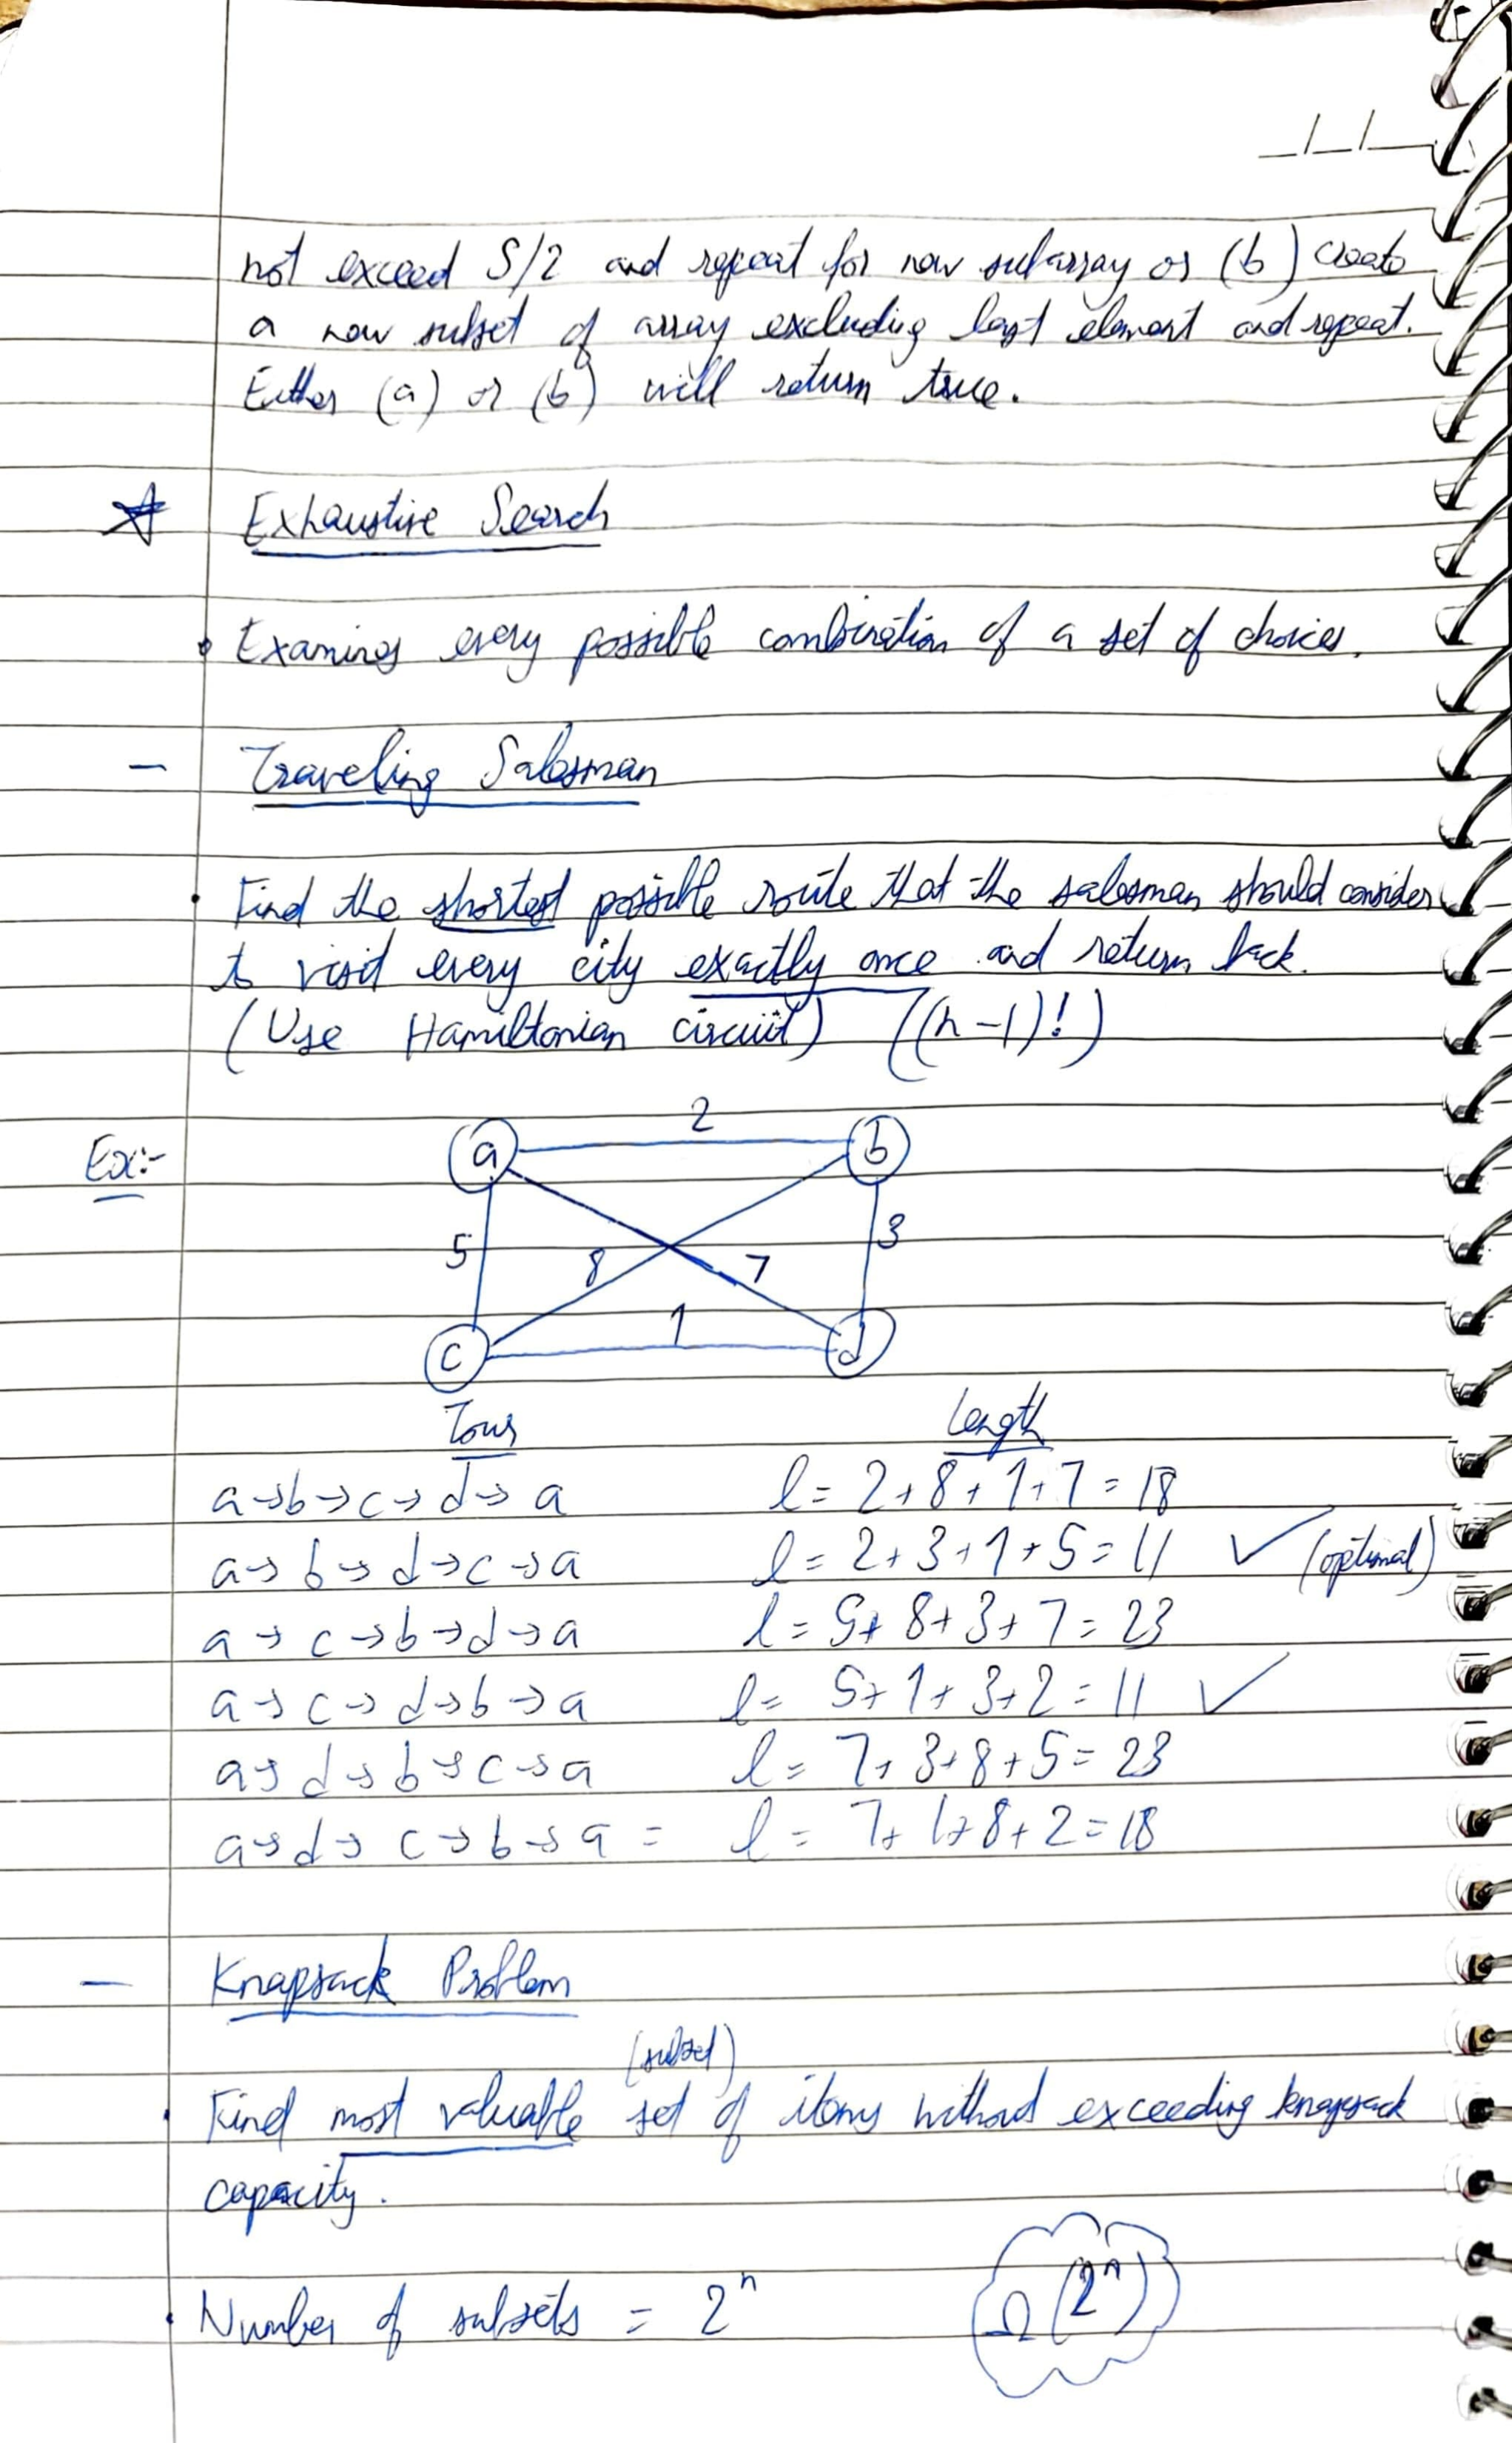 not exceed S/2 and repeat for new subarray or (b) create
a new subset of array excluding last element and repeat.
Either (a) or (b) will return true.
Exhaustive Search
Examines every possible combination of a set of choices.
- Traveling Salesman
• Find the shortest possible route that the salesman should consider
to visit every city exactly once and return back.
(Use Hamiltonian circuit) ((n-1)!)
Ex:-
a 2 b
5 8 7 3
c 1 d
Tour Length
a→b→c→d→a l = 2+8+1+7 = 18
a→b→d→c→a l = 2+3+1+5 = 11 ✓ (optimal)
a→c→b→d→a l = 5+8+3+7 = 23
a→c→d→b→a l = 5+1+3+2 = 11 ✓
a→d→b→c→a l = 7+3+8+5 = 23
a→d→c→b→a = l = 7+1+8+2 = 18
- Knapsack Problem
(subset)
• Find most valuable set of items without exceeding knapsack
capacity.
• Number of subsets = 2ⁿ Ω(2ⁿ)